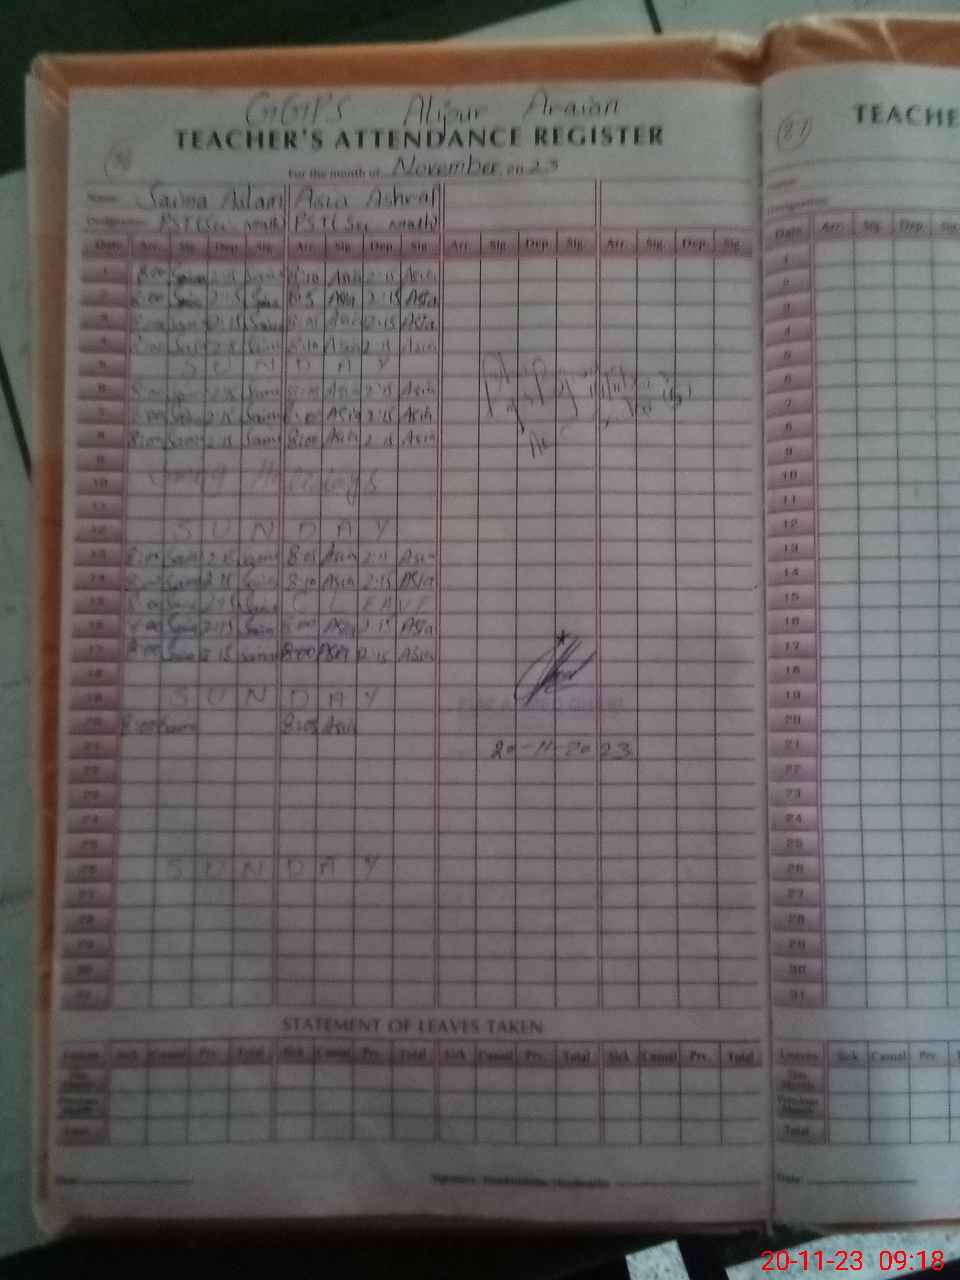 GGPS Alipur Araian
TEACHER'S ATTENDANCE REGISTER
For the month of November 2023
Name Saima Aslam Asia Ashraf
Designation PST (Sci math) PST (Sci math)
Date Arr. Sig. Dep. Sig. Arr. Sig. Dep. Sig. Arr. Sig. Dep. Sig. Arr. Sig. Dep. Sig.
1 8:00 Saima 2:15 Saima 8:10 Asia 2:15 Asia
2 8:00 Saima 2:15 Saima Asia 2:15 Asia
3 8:00 Saima 2:15 Saima Asia 2:15 Asia
4 8:00 Saima 2:15 Saima 8:10 Asia 2:15 Asia
5 S U N D A Y
6 8:00 Saima 2:15 Saima Asia 2:15 Asia
7 8:00 Saima 2:15 Saima 8:00 Asia 2:15 Asia
8 8:00 Saima 2:15 Saima 8:00 Asia 2:15 Asia
9
10 Smog Holidays
11
12 S U N D A Y
13 8:00 Saima 2:15 Saima 8:05 Asia 2:15 Asia
14 8:00 Saima 2:15 Saima 8:10 Asia 2:15 Asia
15 8:00 Saima 2:15 Saima C LEAVE
16 8:00 Saima 2:15 Saima 8:00 Asia 2:15 Asia
17 8:00 Saima 2:15 Saima 8:00 Asia 2:15 Asia
18
19 S U N D A Y
20 8:00 Saima 8:05 Asia
21 20-11-2023
22
23
24
25
26 S U N D A Y
27
28
29
30
31
STATEMENT OF LEAVES TAKEN
Leaves Sick Casual Prv. Total Sick Casual Prv. Total Sick Casual Prv. Total Sick Casual Prv. Total
This Month
Previous Month
Total
Date
(37)
TEACHE
Date Arr. Sig. Dep.
1
2
3
4
5
6
7
8
9
10
11
12
13
14
15
16
17
18
19
20
21
22
23
24
25
26
27
28
29
30
31
Leaves Sick Casual Prv.
This Month
Previous Month
Total
Date
20-11-23 09:18